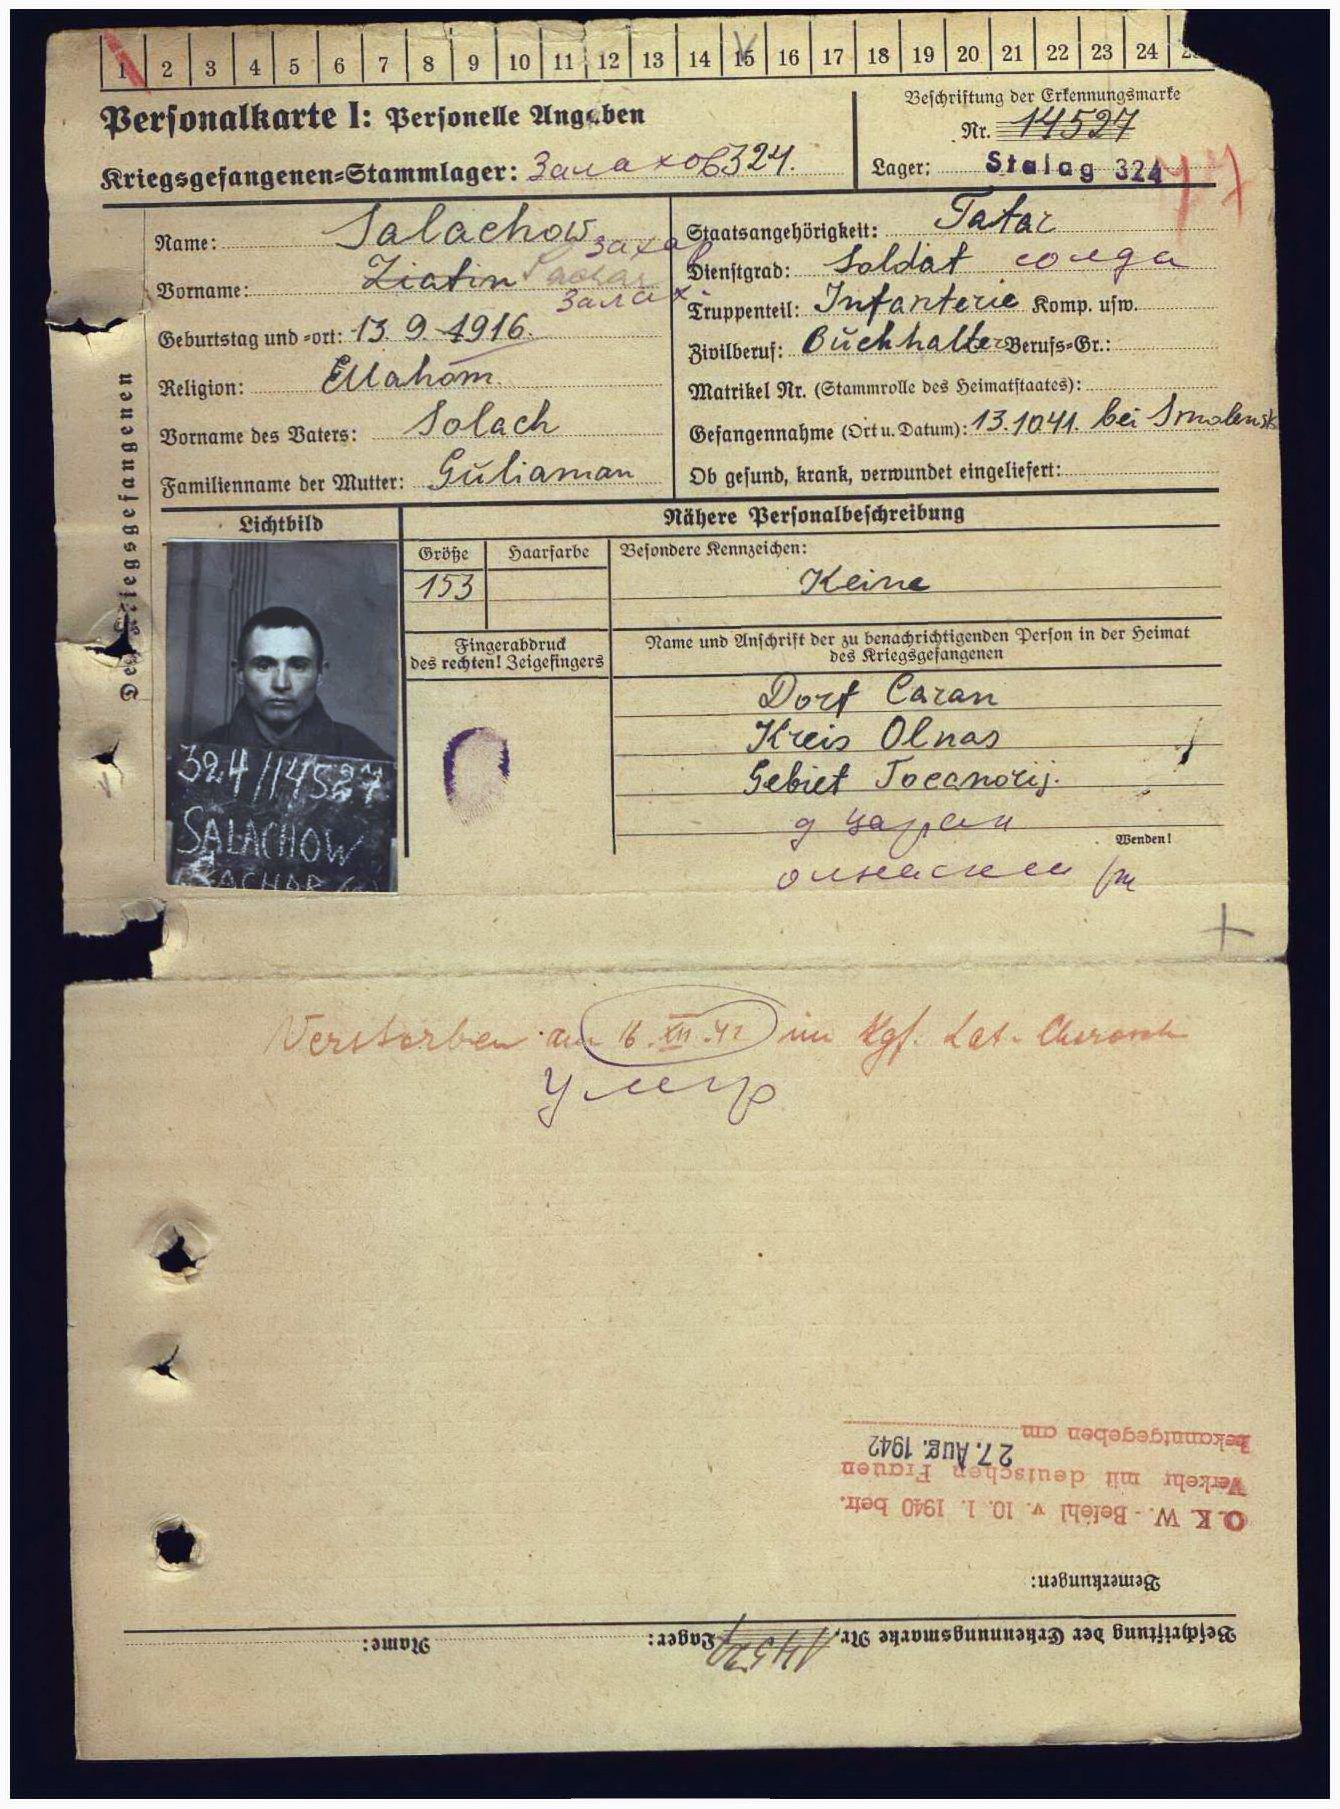 1 2 3 4 5 6 7 8 9 10 11 12 13 14 15 16 17 18 19 20 21 22 23 24
Personalkarte I: Personelle Angaben
Kriegsgefangenen-Stammlager: Залахов 324.
Beschriftung der Erkennungsmarke
Nr. 14527
Lager: Stalag 324
Des Kriegsgefangenen
Name: Salachow
Vorname: Ziatin
Залах
Geburtstag und -ort: 13.9.1916.
Religion: Mahom.
Vorname des Vaters: Solach
Familienname der Mutter: Guliaman
Staatsangehörigkeit: Tatar
Dienstgrad: Soldat солда
Truppenteil: Infanterie Komp. usw.
Zivilberuf: Buchhalter Berufs-Gr.:
Matrikel Nr. (Stammrolle des Heimatstaates):
Gefangennahme (Ort u. Datum): 13.1041. bei Smolensk
Ob gesund, krank, verwundet eingeliefert:
Lichtbild
Nähere Personalbeschreibung
Größe Haarfarbe Besondere Kennzeichen:
153 Keine
Fingerabdruck
des rechten! Zeigefingers
Name und Anschrift der zu benachrichtigenden Person in der Heimat
des Kriegsgefangenen
Dorf Caran
Kreis Olnas
Gebiet
324/14527
SALACHOW
Wenden!
Verstorben am 16.XII.41 im Kgf. Laz.
умер
Bekanntgegeben am
27. Aug. 1942
Verkehr mit deutschen Frauen
O. K. W. - Befehl v. 10. 1. 1940 betr.
Bemerkungen:
Beschriftung der Erkennungsmarke Nr. 14527 Lager: Name: